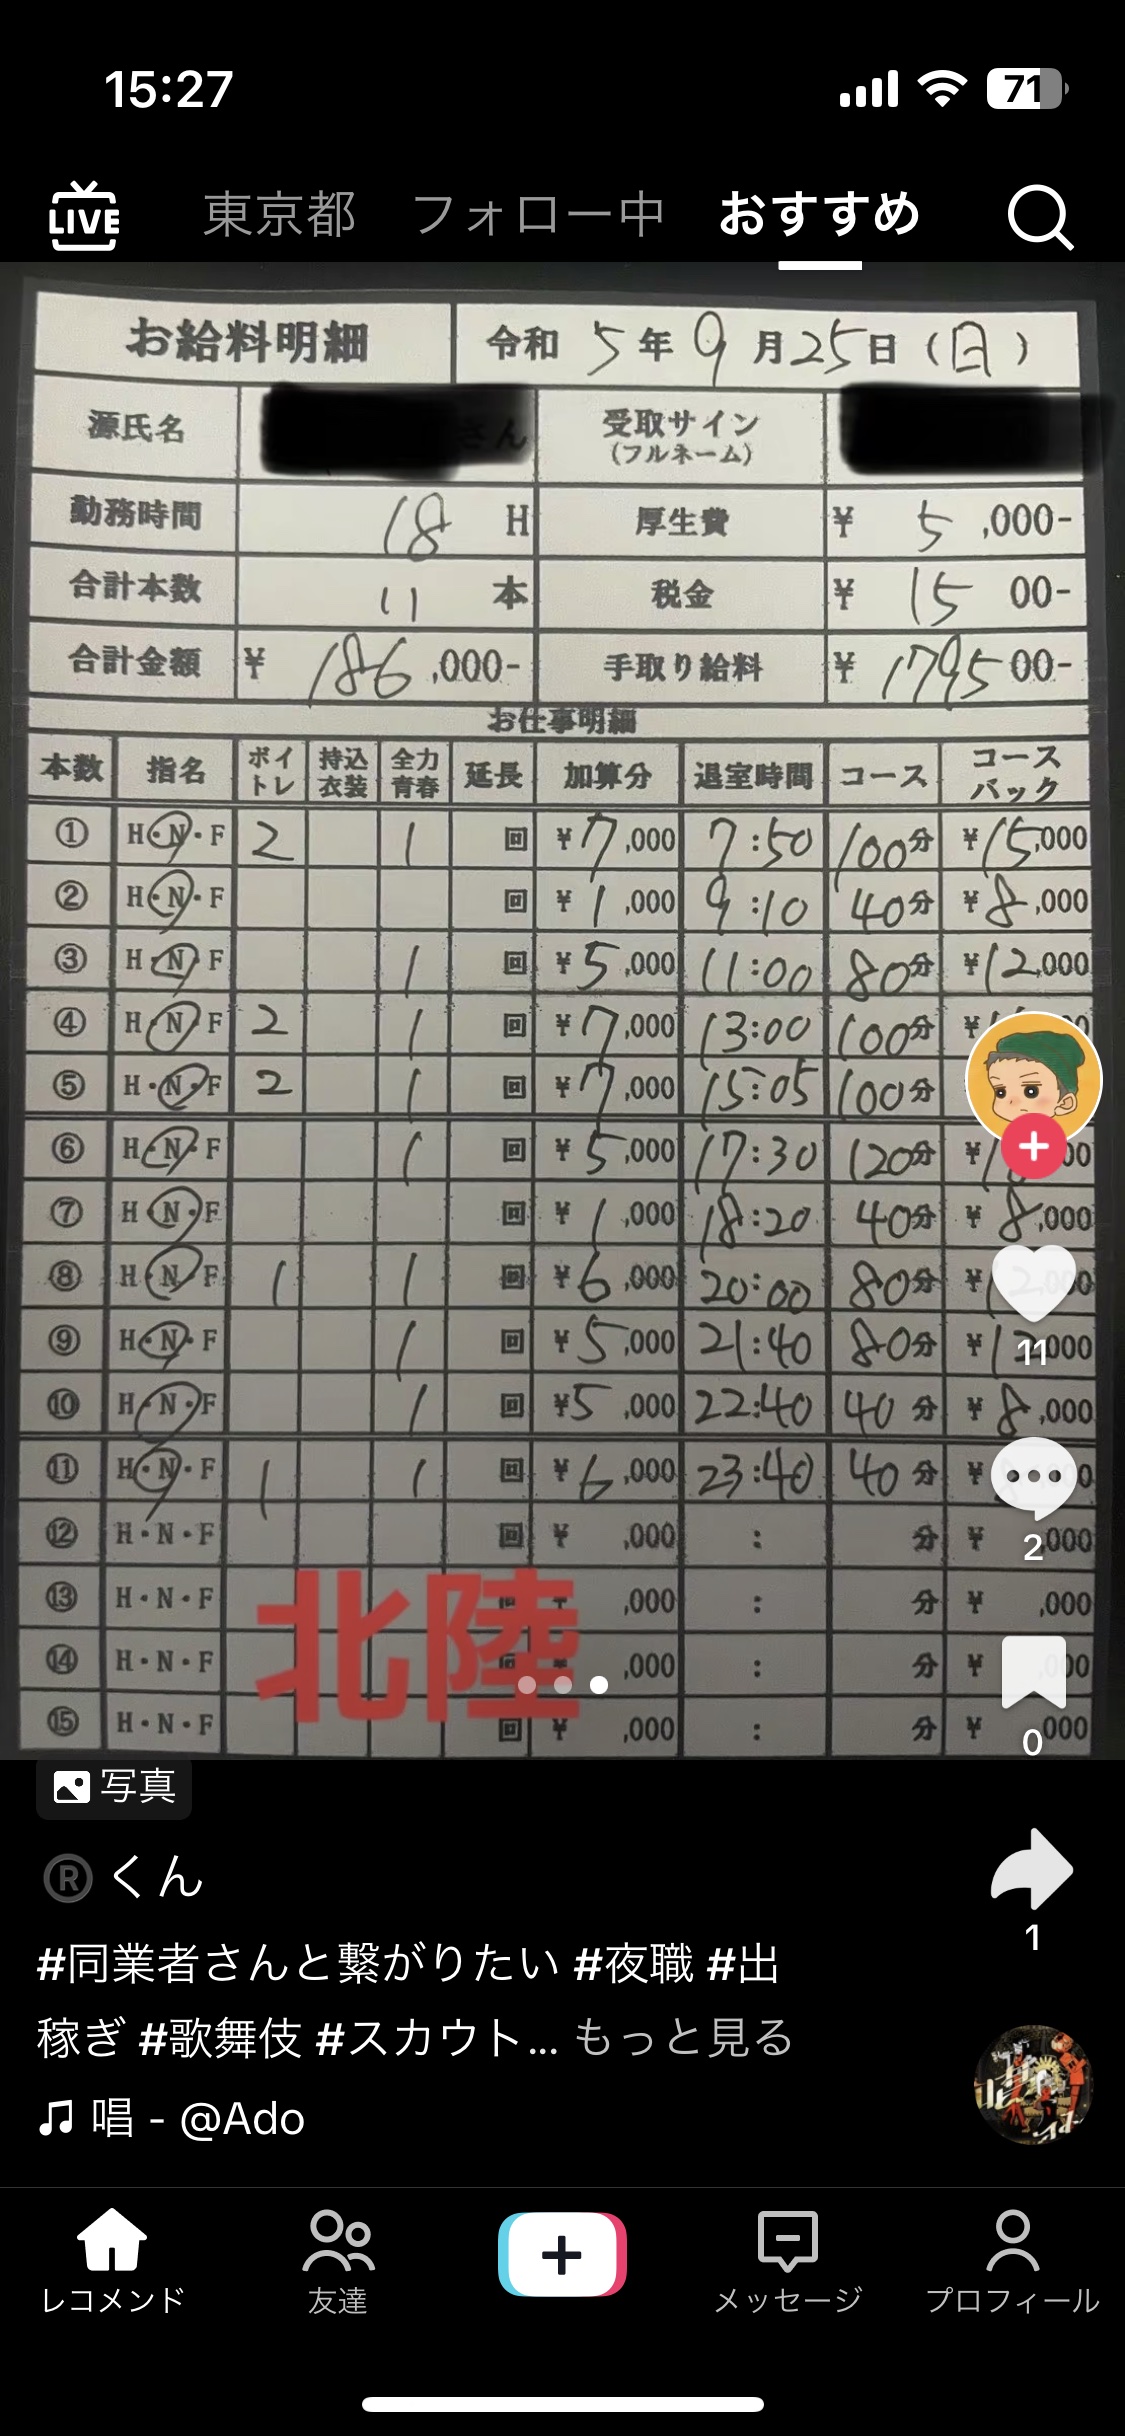 15:27
71
LIVE 東京都 フォロー中 おすすめ
お給料明細 令和 5年 9月25日(日)
源氏名 さん 受取サイン
(フルネーム)
勤務時間 18 H 厚生費 ¥ 5,000-
合計本数 11 本 税金 ¥ 1500-
合計金額 ¥ 186,000- 手取り給料 ¥ 179500-
お仕事明細
本数 指名 ボイトレ 持込衣装 全力青春 延長 加算分 退室時間 コース コースバック
① H・N・F 2 1 回 ¥7,000 7:50 100分 ¥15,000
② H・N・F 回 ¥1,000 9:10 40分 ¥8,000
③ H・N・F 1 回 ¥5,000 11:00 80分 ¥12,000
④ H・N・F 2 1 回 ¥7,000 13:00 100分 ¥
⑤ H・N・F 2 1 回 ¥7,000 15:05 100分
⑥ H・N・F 1 回 ¥5,000 17:30 120分 ¥
⑦ H・N・F 回 ¥1,000 18:20 40分 ¥8,000
⑧ H・N・F 1 1 回 ¥6,000 20:00 80分 ¥12,000
⑨ H・N・F 1 回 ¥5,000 21:40 80分 ¥12,000
⑩ H・N・F 1 回 ¥5,000 22:40 40分 ¥8,000
⑪ H・N・F 1 1 回 ¥6,000 23:40 40分 ¥
⑫ H・N・F 回 ¥ ,000 : 分 ¥ ,000
⑬ H・N・F 回 ¥ ,000 : 分 ¥ ,000
⑭ H・N・F ,000 : 分 ¥ ,000
⑮ H・N・F 回 ¥ ,000 : 分 ¥ ,000
北陸
11
2
0
1
写真
®くん
#同業者さんと繋がりたい #夜職 #出
稼ぎ #歌舞伎 #スカウト... もっと見る
♫ 唱 - @Ado
レコメンド 友達 メッセージ プロフィール